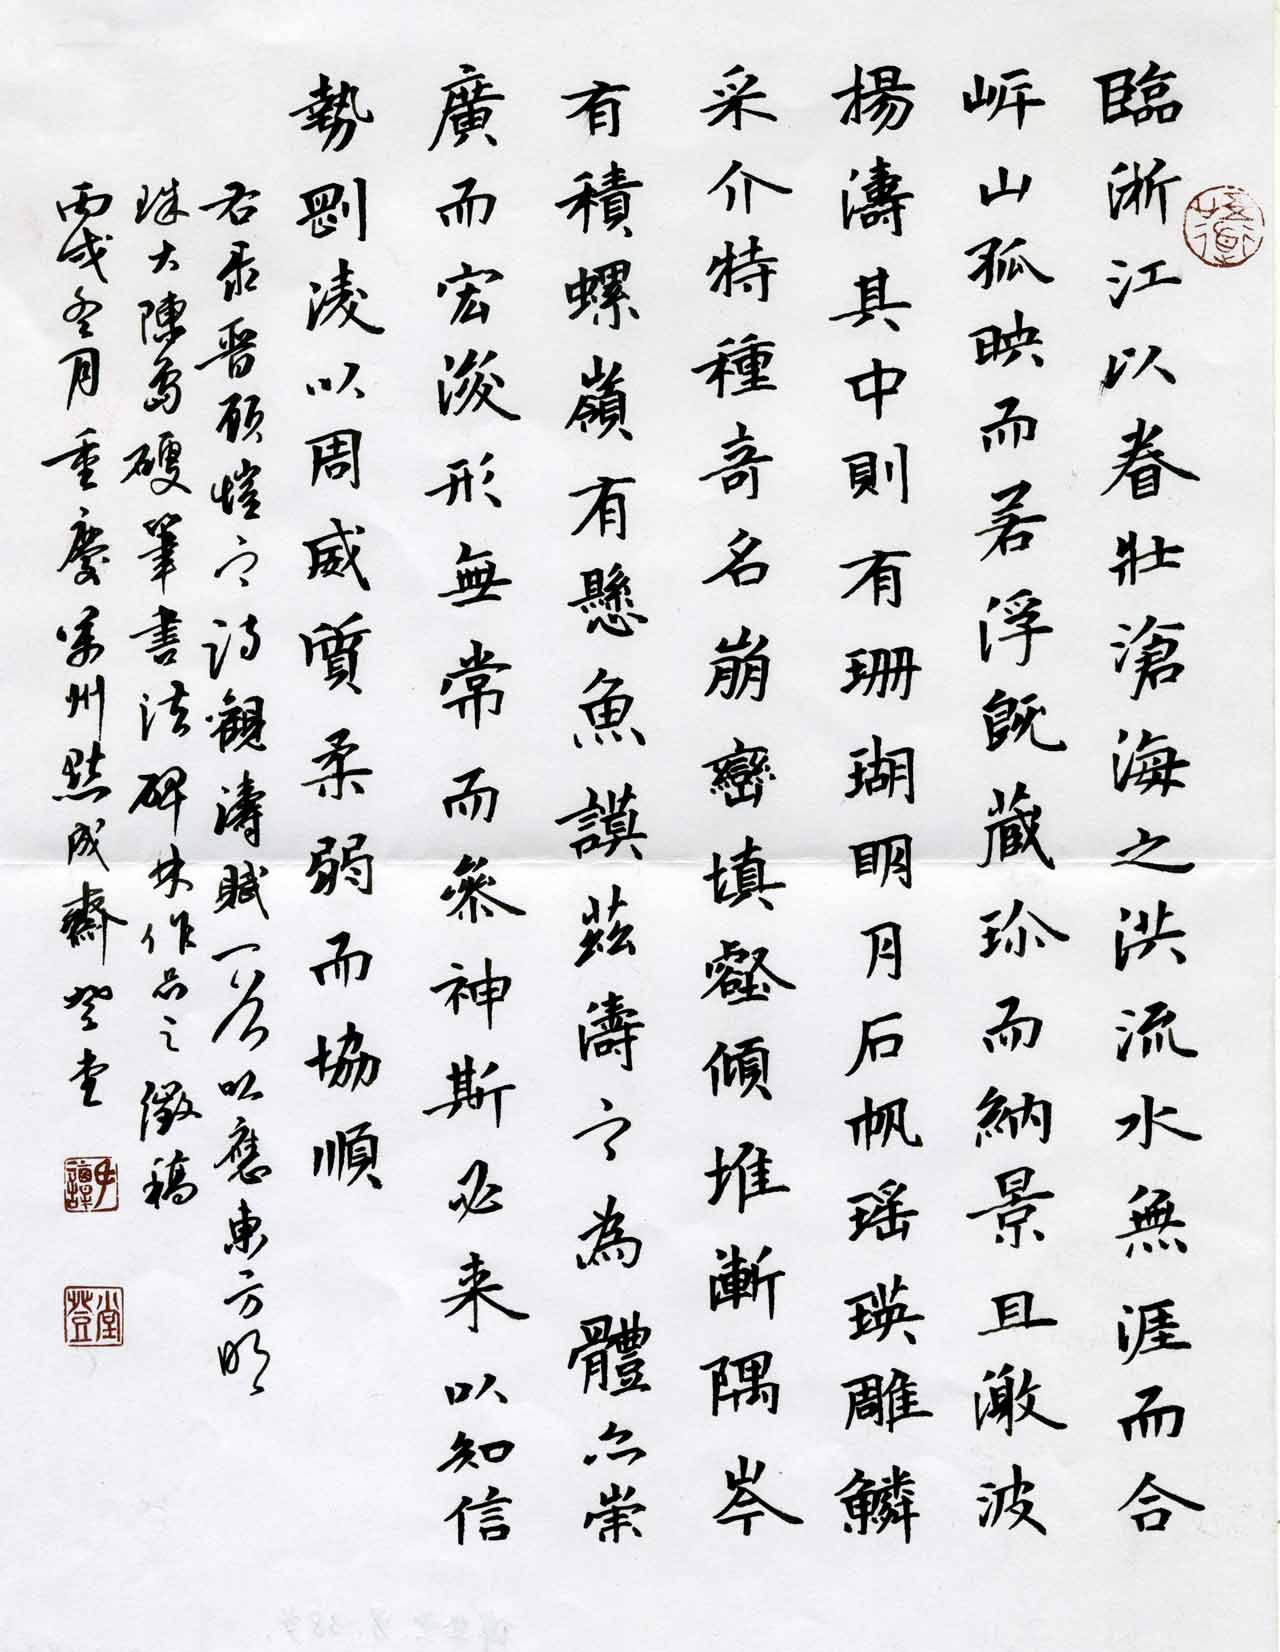 臨淅江以眷壯滄海之洪流水無涯而合
岓山孤映而若浮既蔵珎而納景且激波
揚濤其中則有珊瑚明月石帆瑶瑛雕鱗
采介特種奇名崩巒填壑傾堆漸隅岑
有積螺嶺有懸魚謨茲濤之為體亦崇
廣而宏浚形無常而參神斯必来以知信
勢剛淩以周威質柔弱而協順
右录晋顾愷之詩觀濤賦一首以應東方明
珠大陳島硬筆書法碑林作品之徵稿
丙戌冬月重慶萬州默成齋登堂
譚
登堂